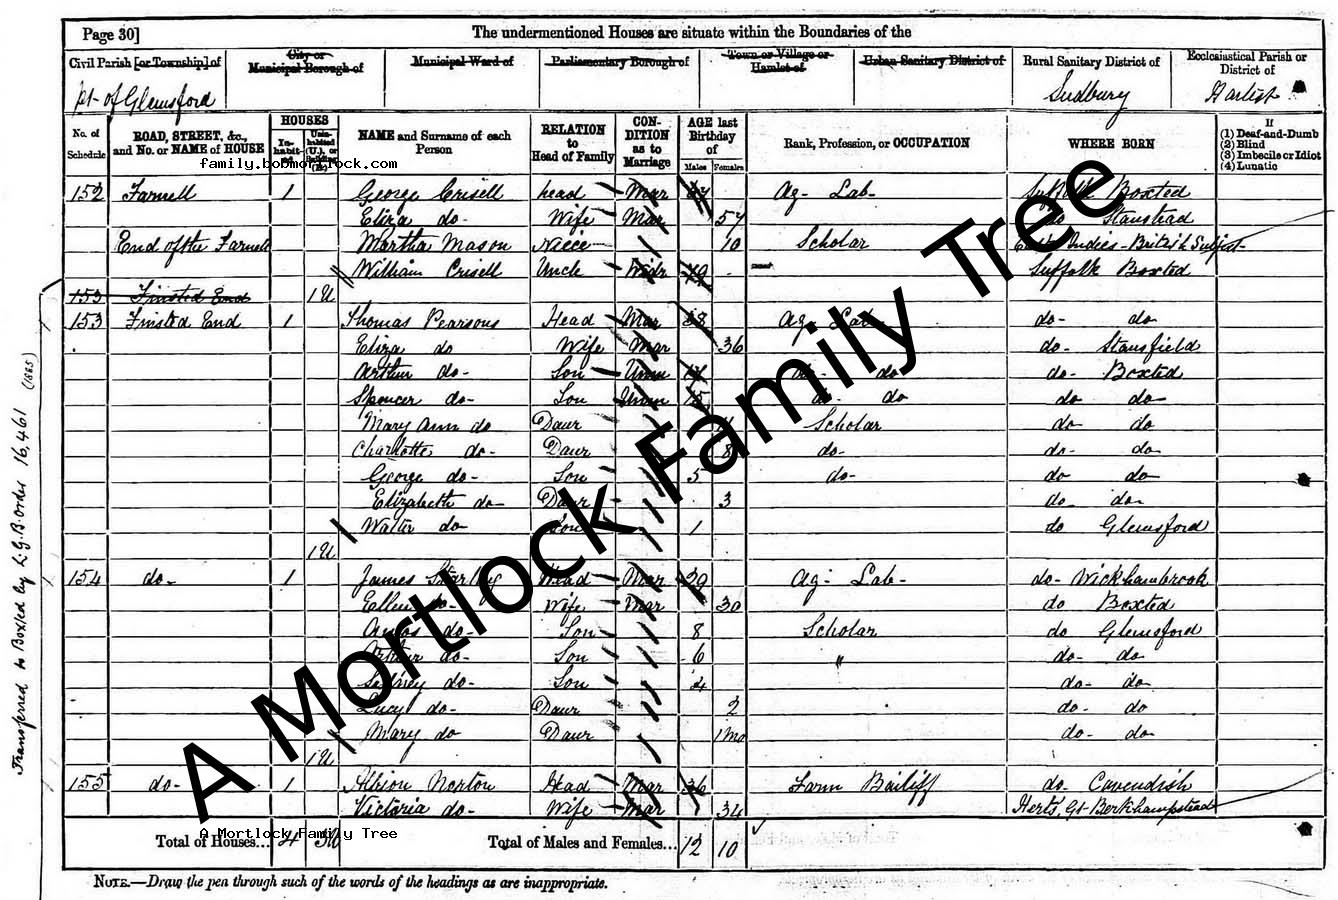 Page 30] The undermentioned Houses are situate within the Boundaries of the
Civil Parish [or Township] of City or Municipal Borough of Municipal Ward of Parliamentary Borough of Town or Village or Hamlet of Urban Sanitary District of Rural Sanitary District of Ecclesiastical Parish or District of
pt of Glemsford Sudbury Hartist
No. of Schedule ROAD, STREET, &c., and No. or NAME of HOUSE HOUSES In-habit-ed Unin-habited (U.), or Building (B.) NAME and Surname of each Person RELATION to Head of Family CON-DITION as to Marriage AGE last Birthday of Males Females Rank, Profession, or OCCUPATION WHERE BORN If (1) Deaf-and-Dumb (2) Blind (3) Imbecile or Idiot (4) Lunatic
family.bobmortlock.com
152 Farnell 1 George Crisell head Mar Ag- Lab- Suffolk Boxted
Eliza do- Wife Mar 57 do Stanstead
End of the Farnell Martha Mason Niece 10 Scholar East Indies - British Subject
William Crisell Uncle Widr Suffolk Boxted
153 Finsted End 1U
153 Finsted End 1 Thomas Pearsons Head Mar 38 Ag- Lab do- do-
Eliza do Wife Mar 36 do- Stansfield
Arthur do- Son Unm do do- Boxted
Spencer do- Son Unm 15 do- do do do-
Mary Ann do Daur Scholar do- do
Charlotte do- Daur 8 do- do- do-
George do- Son 5 do- do do-
Elizabeth do- Daur 3 do- do-
Walter do Son 1 do Glemsford
1U
154 do- 1 James Starling Head Mar 29 Ag- Lab- do- Wickhambrook
Ellen do- Wife Mar 30 do Boxted
Amos do- Son 8 Scholar do Glemsford
Arthur do- Son 6 " do- do-
Sidney do- Son 4 do- do
Lucy do- Daur 2 do- do
Mary do Daur 1 Mo do- do-
1U
155 do- 1 Albion Norton Head Mar 36 Farm Bailiff do- Cavendish
Victoria do- Wife Mar 34 Herts, Gt Berkhampstead
A Mortlock Family Tree
Total of Houses... 4 3U Total of Males and Females... 12 10
NOTE.—Draw the pen through such of the words of the headings as are inappropriate.
Transferred to Boxted by L.G.B. order 16,461 (1885)
A Mortlock Family Tree